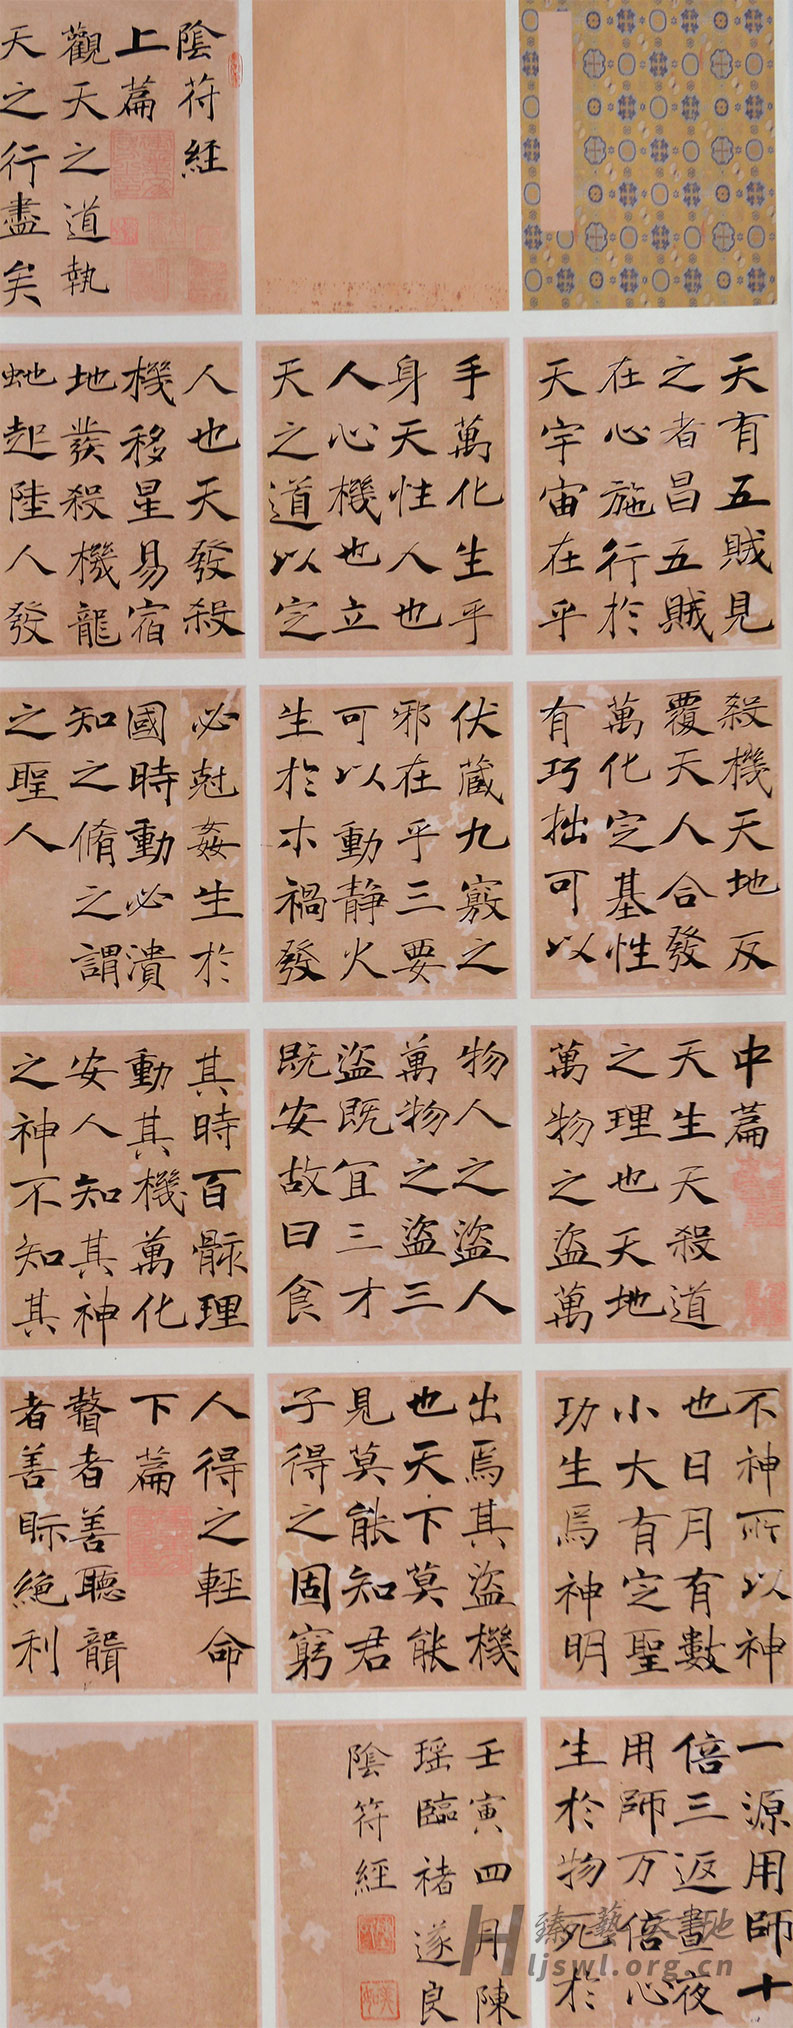 陰符經
上篇
觀天之道執
天之行盡矣
天有五賊見
之者昌五賊
在心施行於
天宇宙在乎
手萬化生乎
身天性人也
人心機也立
天之道以定
人也天發殺
機移星易宿
地發殺機龍
虵起陸人發
殺機天地反
覆天人合發
萬化定基性
有巧拙可以
伏藏九竅之
邪在乎三要
可以動静火
生於木禍發
必尅姦生於
國時動必潰
知之脩之謂
之聖人
中篇
天生天殺道
之理也天地
萬物之盜萬
物人之盜人
萬物之盜三
盜既宜三才
既安故曰食
其時百骸理
動其機萬化
安人知其神
之神不知其
不神所以神
也日月有數
小大有定聖
功生焉神明
出焉其盜機
也天下莫能
見莫能知君
子得之固窮
人得之輕命
下篇
瞽者善聽聾
者善眎絶利
一源用師十
倍三返晝夜
用師万倍心
生於物死於
壬寅四月陳
瑶臨褚遂良
陰符經
臻藝天地
Hljswl.org.cn